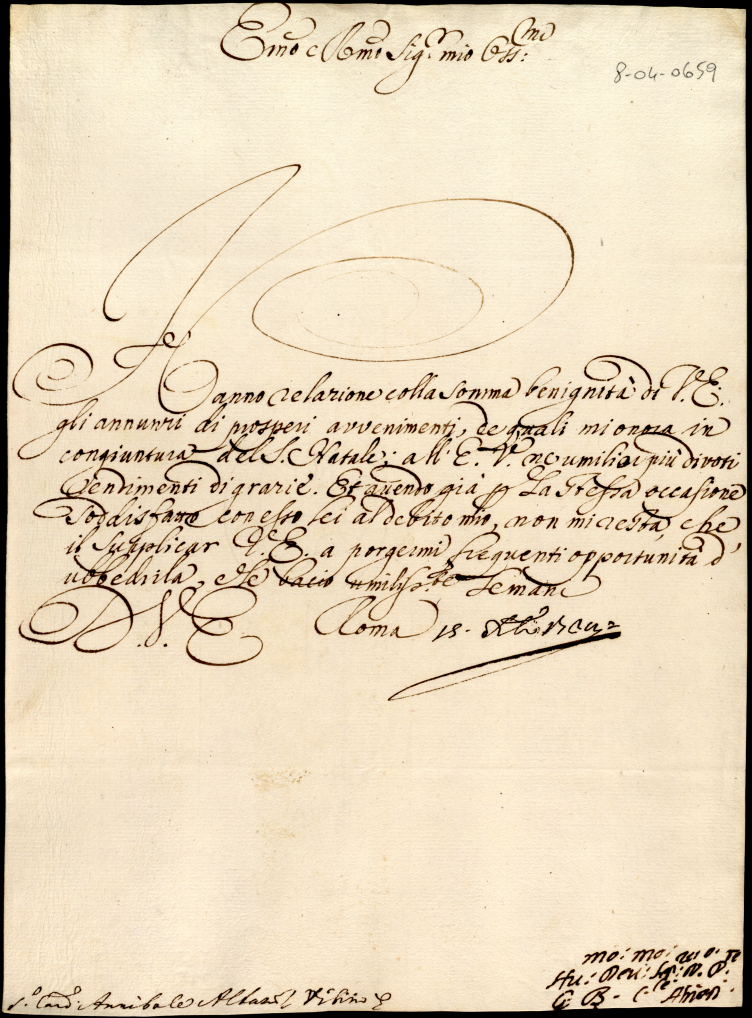 Emo e Rmo Sigr mio Oss:mo
8-04-0659
Hanno relazione colla somma benignità di V.E.
gli annunzi di prosperi avvenimenti, de quali mi onora in
congiuntura del S. Natale; all' E.V. ne umilio i più divoti
sentimenti di grazie. Et avendo già p La stessa occasione
soddisfatto con esso lei al debito mio, non mi resta, che
il supplicar V.E. a porgermi frequenti opportunità d'
ubbedirla, e le bacio umilisste le mani
D.V.E. Roma 15.
mo: mo:
S.r Card: Annibale Albani